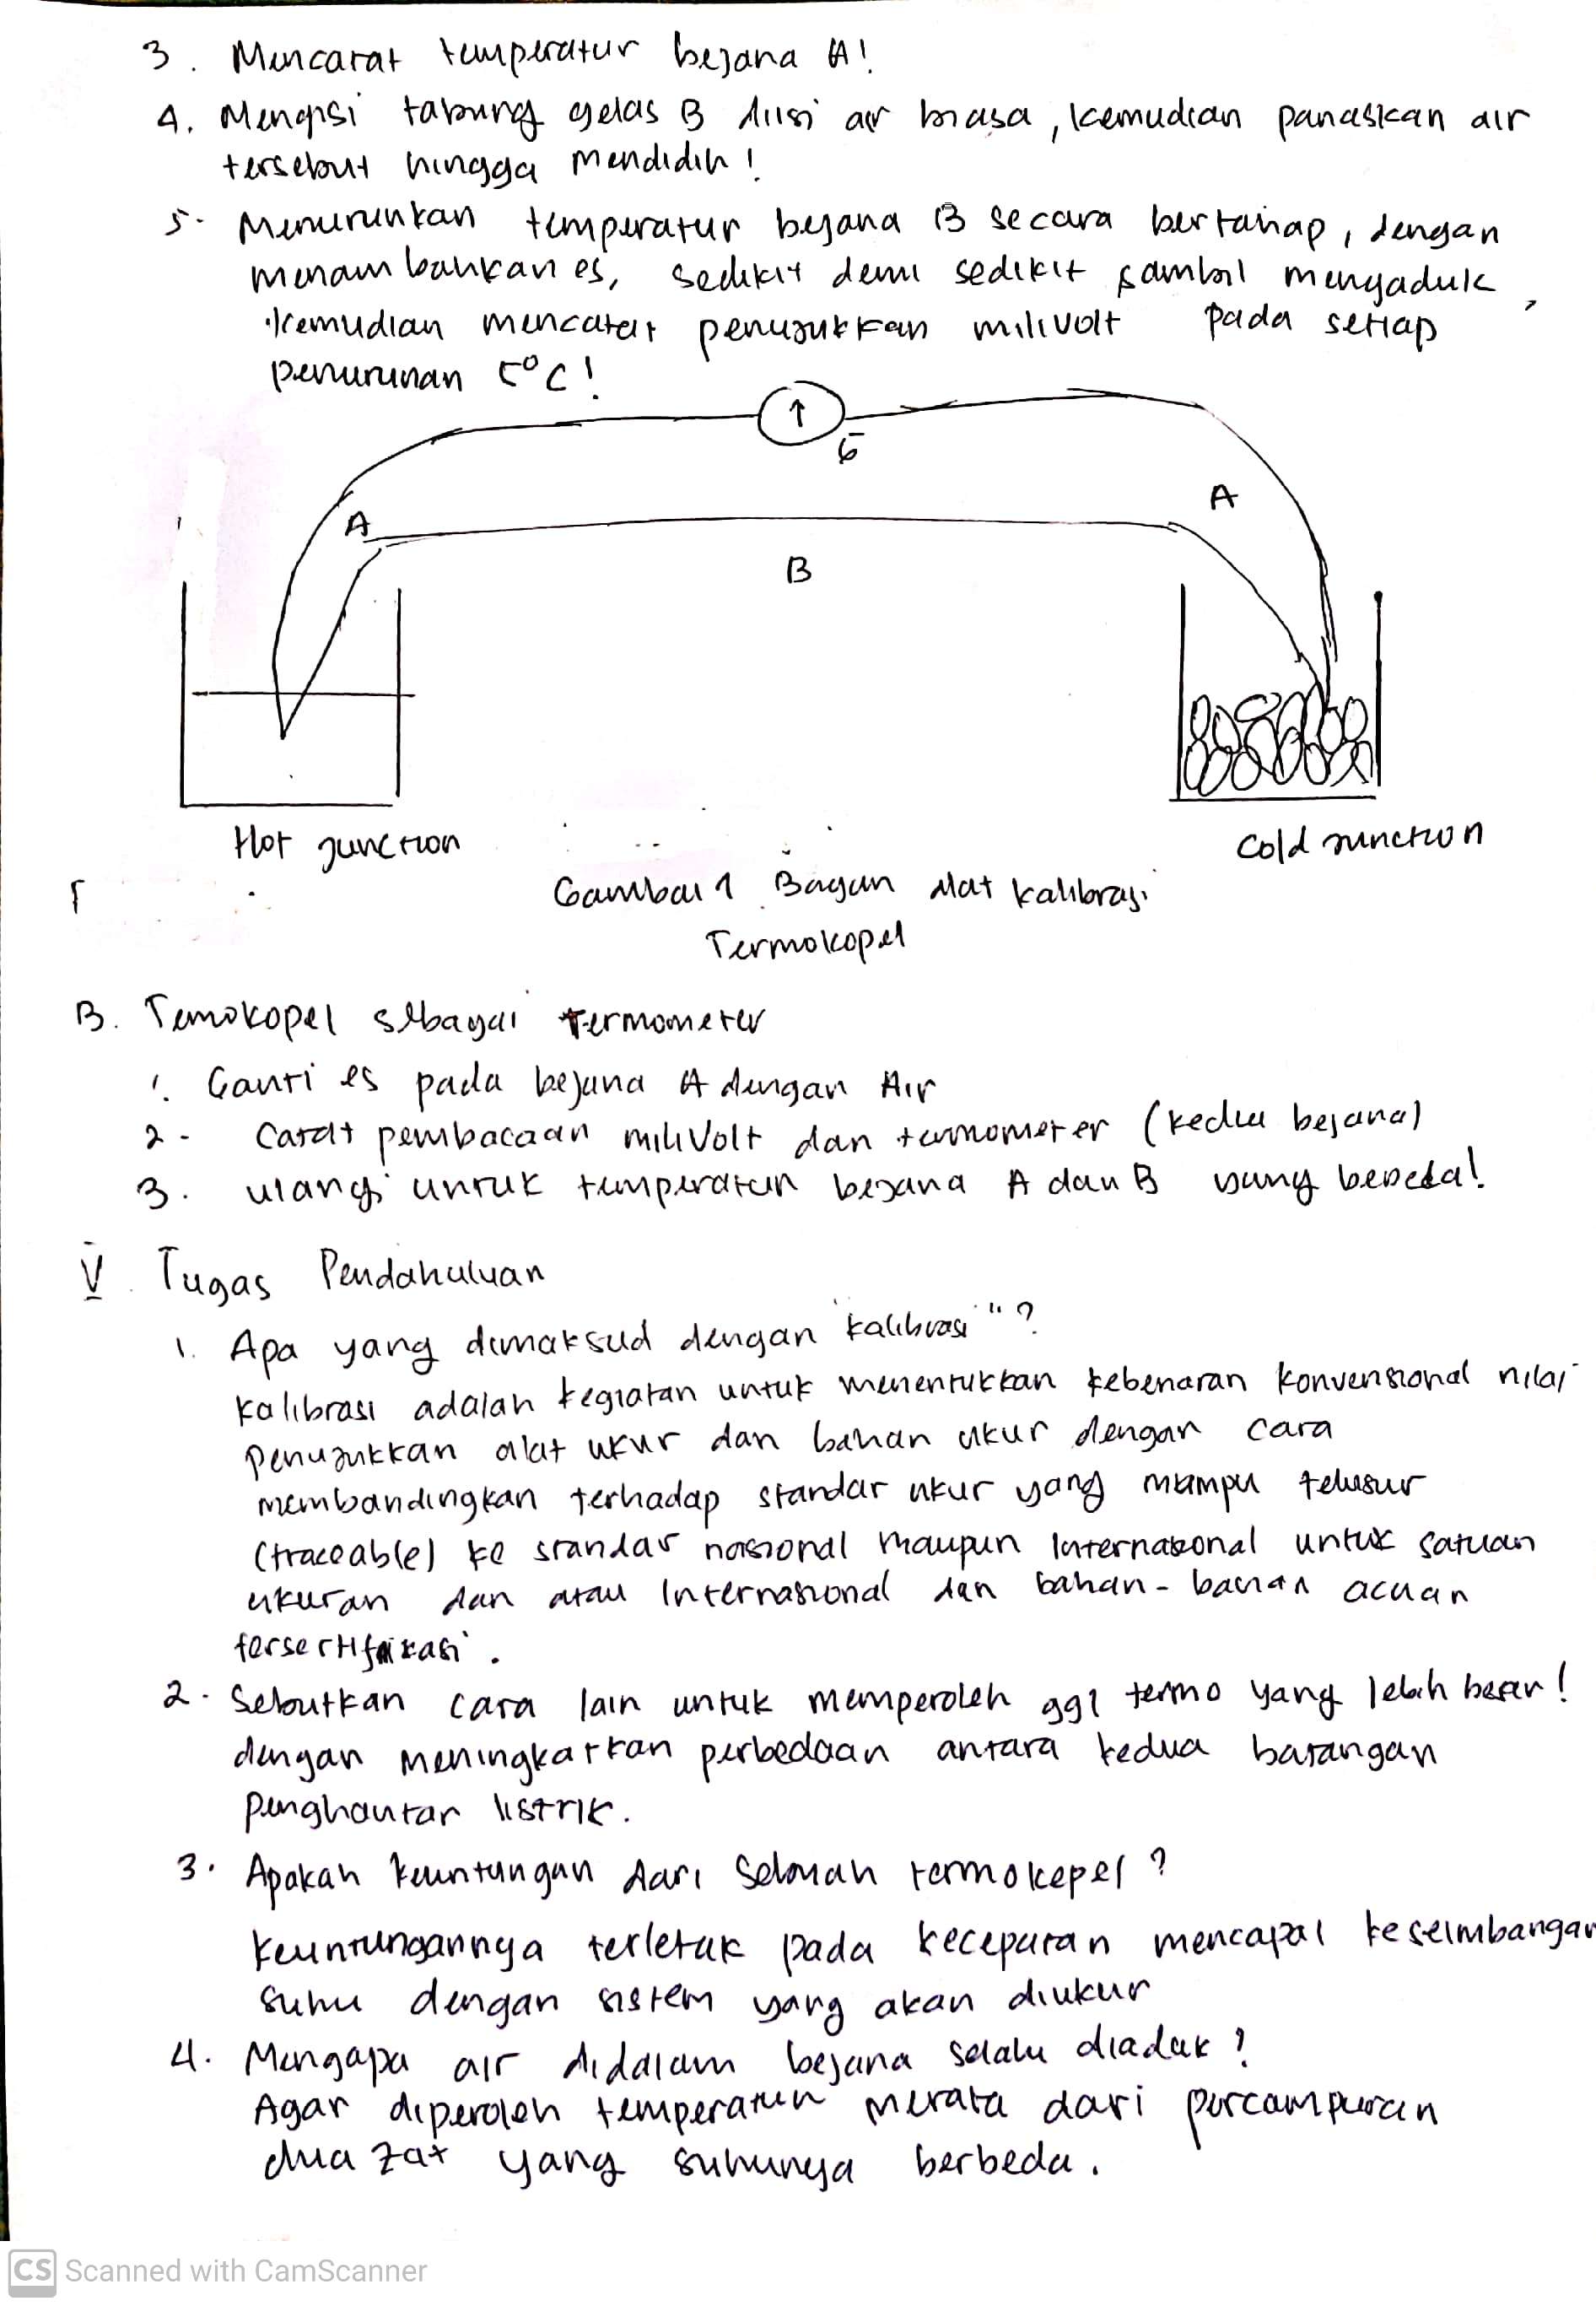 3. Mencatat temperatur bejana A!
4. Mengisi tabung gelas B diisi air biasa, kemudian panaskan air
tersebut hingga mendidih!
5. Menurunkan temperatur bejana B secara bertahap, dengan
menambahkan es, sedikit demi sedikit sambil mengaduk,
kemudian mencatat penunjukkan milivolt pada setiap
penurunan 5°C!
G
A
A
B
Hot junction
Cold junction
Gambar 1 Bagan Alat kalibrasi
Termokopel
B. Temokopel sebagai Termometer
1. Ganti es pada bejana A dengan Air
2. Catat pembacaan miliVolt dan termometer (kedua bejana)
3. ulangi untuk temperatur bejana A dan B yang bebeda!
V. Tugas Pendahuluan
1. Apa yang dimaksud dengan "kalibrasi"?
kalibrasi adalah kegiatan untuk menentukkan kebenaran konvensional nilai
penunjukkan alat ukur dan bahan ukur dengan cara
membandingkan terhadap standar ukur yang mampu telusur
(traceable) ke standar nasional maupun Internasional untuk satuan
ukuran dan atau Internasional dan bahan-bahan acuan
tersertifikasi.
2. Sebutkan cara lain untuk memperoleh ggl termo yang lebih besar!
dengan meningkatkan perbedaan antara kedua batangan
penghantar listrik.
3. Apakah keuntungan dari Sebuah termokepel?
keuntungannya terletak pada kecepatan mencapai keseimbangan
suhu dengan sistem yang akan diukur
4. Mengapa air didalam bejana selalu diaduk?
Agar diperoleh temperatur merata dari percampuran
dua zat yang suhunya berbeda.
CS Scanned with CamScanner